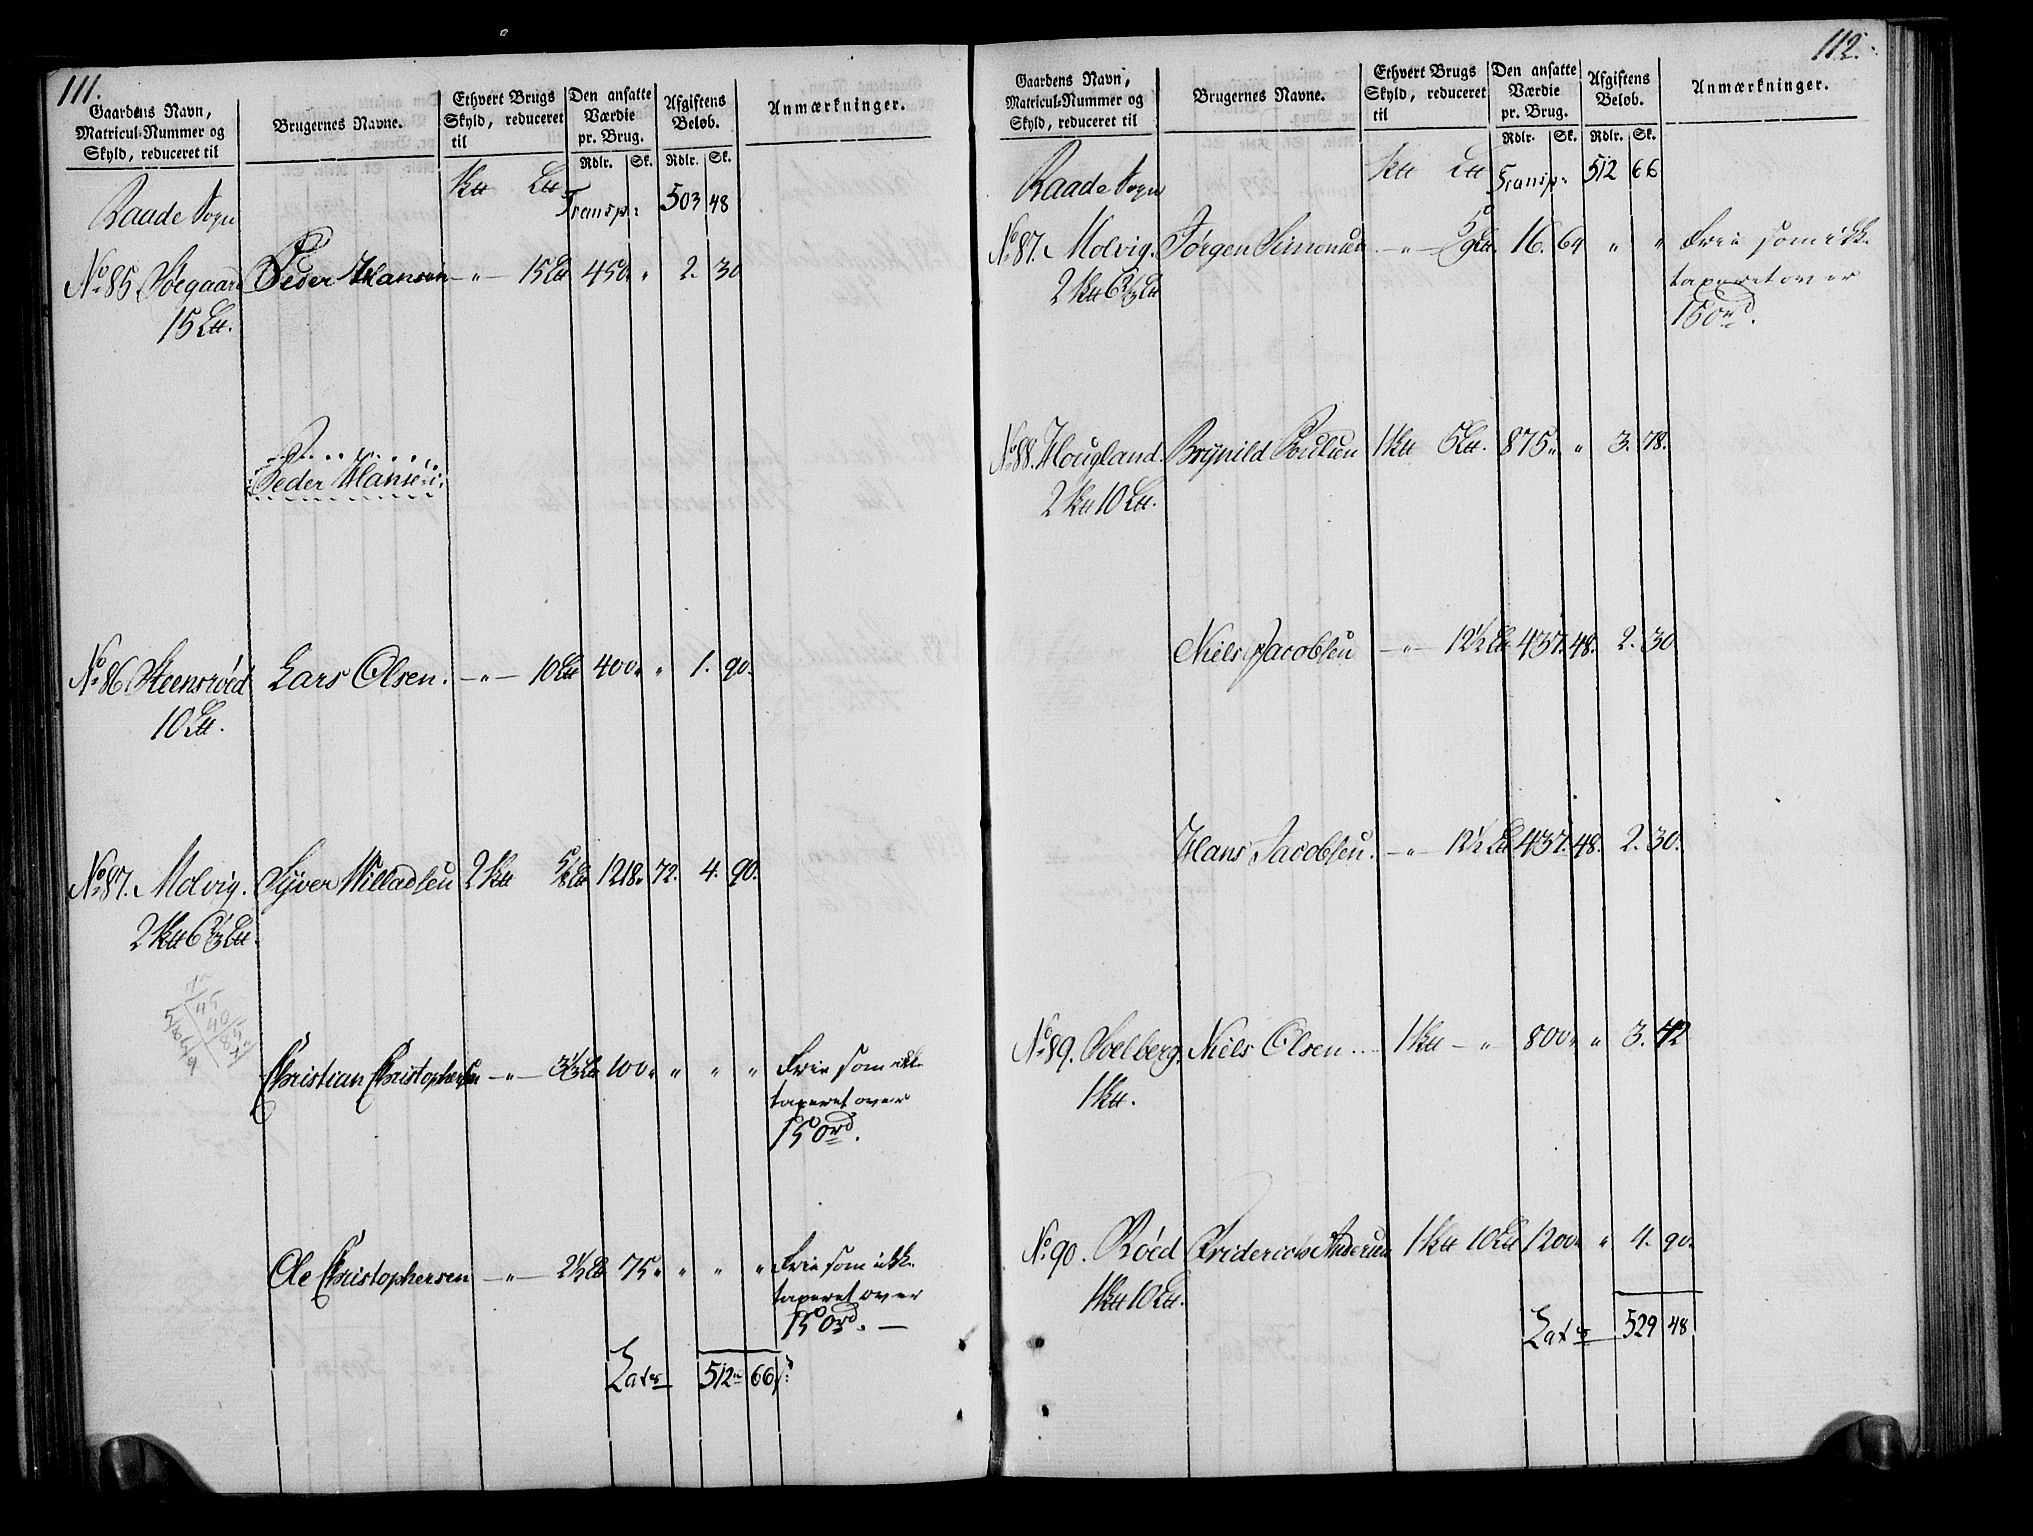 111.
Gaardens Navn, Matricul-Nummer og Skyld, reduceret til | Brugernes Navne. | Ethvert Brugs Skyld, reduceret til | Den ansatte Værdie pr. Brug. Rdlr. Sk. | Afgiftens Beløb. Rdlr. Sk. | Anmærkninger.
Raade Sogn Transp: 503 48
No 85 Søegaard Peder Hansen – " – 15 450 " 2. 30
15
Peder Hansen
No 86 Steensrød Lars Olsen. – " – 10 400 " 1. 90.
10
No 87. Molvig. Syver Willadsen 2 1218. 72. 4. 90.
2 6 2/3
Christian Christophersen – " – 3 1/3 100 " " " " Frie som ikke
taxeret over
150 rd.
Ole Christophersen – " – 2 1/2 75 " " " " Frie som ikke
taxeret over
150 rd. –
Lateris 512 66
112.
Gaardens Navn, Matricul-Nummer og Skyld, reduceret til | Brugernes Navne. | Ethvert Brugs Skyld, reduceret til | Den ansatte Værdie pr. Brug. Rdlr. Sk. | Afgiftens Beløb. Rdlr. Sk. | Anmærkninger.
Raade Sogn Transp: 512 66
No 87. Molvig. Jørgen Simensen – " – 16. 64 " " Frie som ikke
2 6 2/3 taxeret over
150 rd.
No 88. Hougland. Brynild Poulsen 1 5 875 " 3. 78.
2 10
Niels Jacobsen – " – 12 1/2 437. 48. 2. 30
Hans Jacobsen. – " – 12 1/2 437. 48. 2. 30.
No 89. Soelberg. Niels Olsen 1 – " 800 " 3. 42
1
No 90. Røed Friderich Andersen 1 10 1200 " 4. 90.
1 10
Lateris 529 48